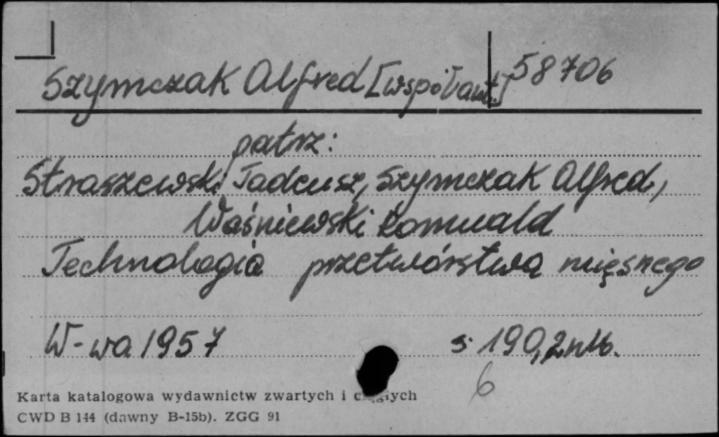 Szymczak Alfred [współaut.] 58706
patrz:
Straszewski Tadeusz, Szymczak Alfred,
Waśniewski Romuald
Technologia przetwórstwa mięsnego
W-wa 1957 s. 190, 2 nlb.
6
Karta katalogowa wydawnictw zwartych i ciągłych
CWD B 144 (dawny B-15b). ZGG 91